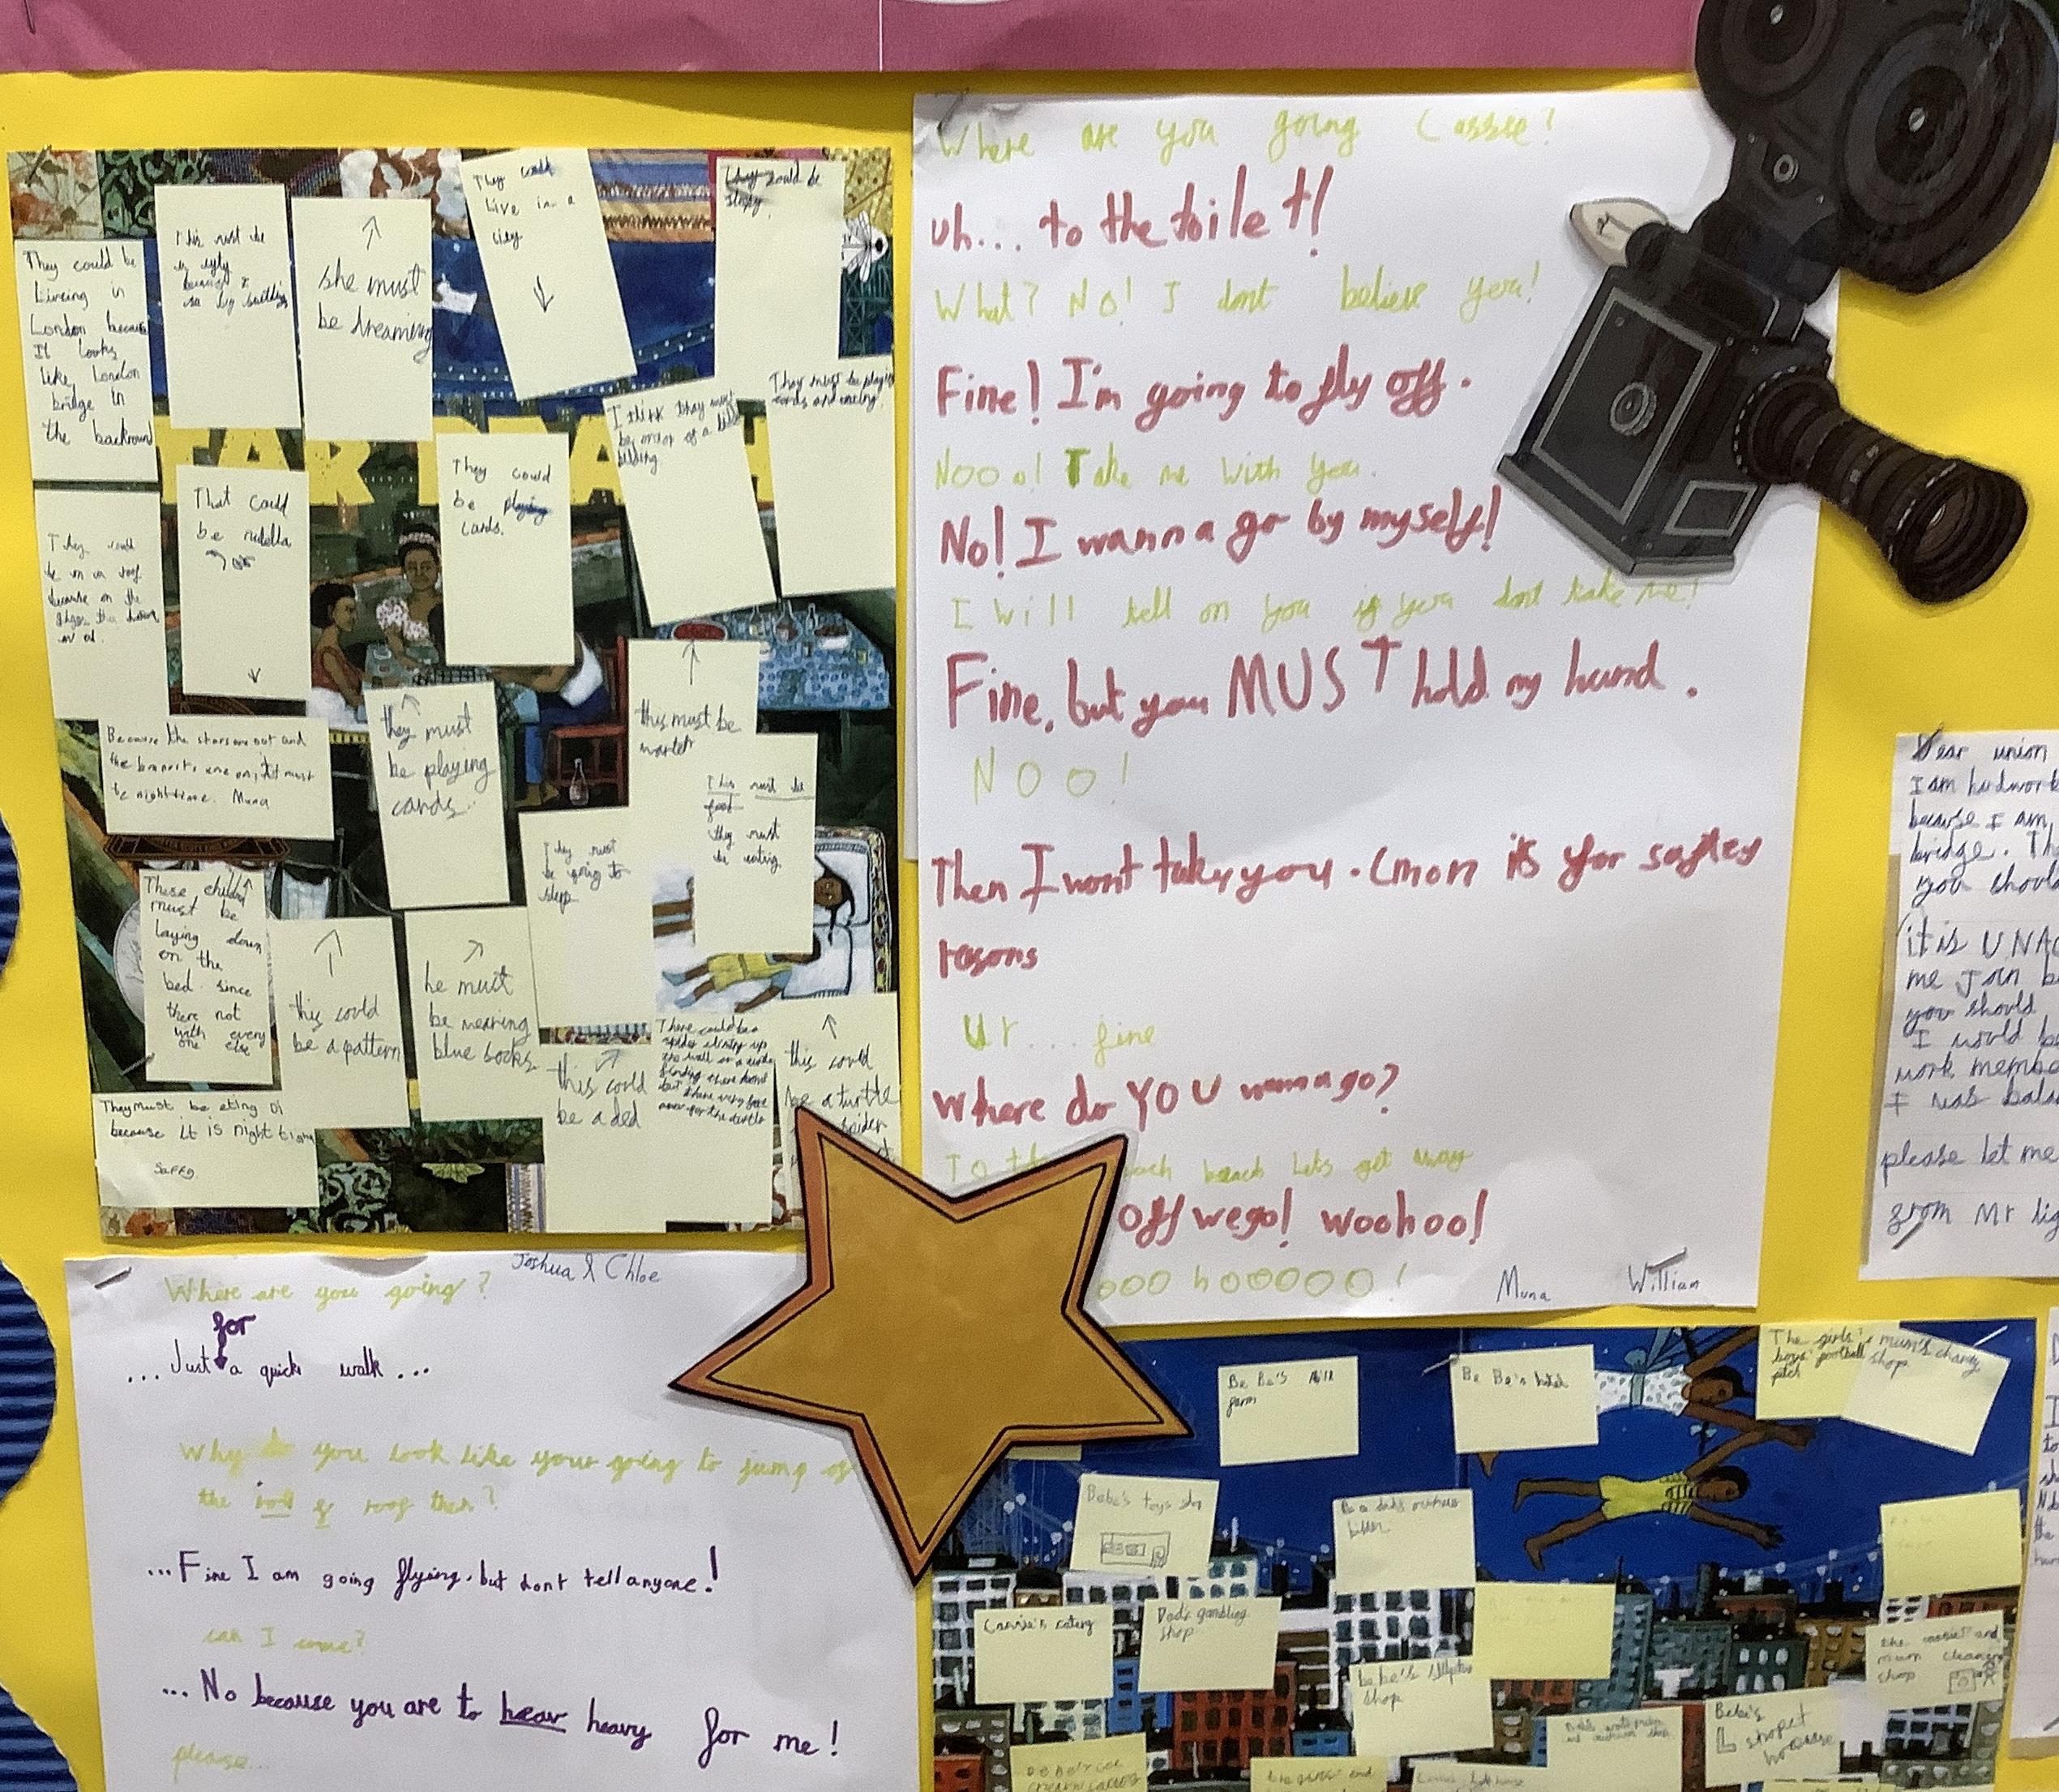 They could be
Liveing in
London because
It looks
like London
bridge in
the backround
This must be
she must
be dreaming
They could
Live in a
city
They could be
sleepy
I think they must
be on top of a
bilding
They must be playing
cards and
TAR
They could
be on a roof
because on the
That could
be nutella
They could
be playing
cards.
Because the stars are out and
the are on, it must
be nighttime. Muna
they must
be playing
cards
this must be
water
This must be
food
they must
be eating
They must
be going to
sleep
These children
must be
laying down
on the
bed since
there not
with every
one else
this could
be a pattern
he must
be wearing
blue socks
this could
be a bed
There could be a
spider
this could
be a turtle
They must be eting
because it is night
Where are you going Cassie?
uh... to the toilet!
What? No! I dont believe you!
Fine! I'm going to fly off.
Nooo! Take me with you.
No! I wanna go by myself!
I will tell on you if you dont take me!
Fine, but you MUST hold my hand.
NOO!
Then I wont take you. Cmon its for saftey
resons
Ur.... fine
Where do YOU wanna go?
beach Lets get away
Off we go! woohoo!
ooo hooooo!
Muna William
Dear union
I am hardwork
because I am
bridge. Th
you should
it is UNAC
me Join b
you should
I would b
work membe
I was bala
please let me
from Mr lig
Joshua & Chloe
Where are you going?
for
...Just a quick walk...
Why do you look like your going to jump of
the roof then?
...Fine I am going flying, but dont tell anyone!
can I come?
...No because you are to heav heavy for me!
please...
Be Be's milk
farm
Be Be's hotel
The girls &
boys' football
pitch
mum's charity
shop
Bebe's toys shop
Cassie's eatery
Dad's gambling
shop
bebe's
shop
the cassie? and
mum cleaning
shop
Bebe's
L shopet
hoouse
Be Be's ice
cream